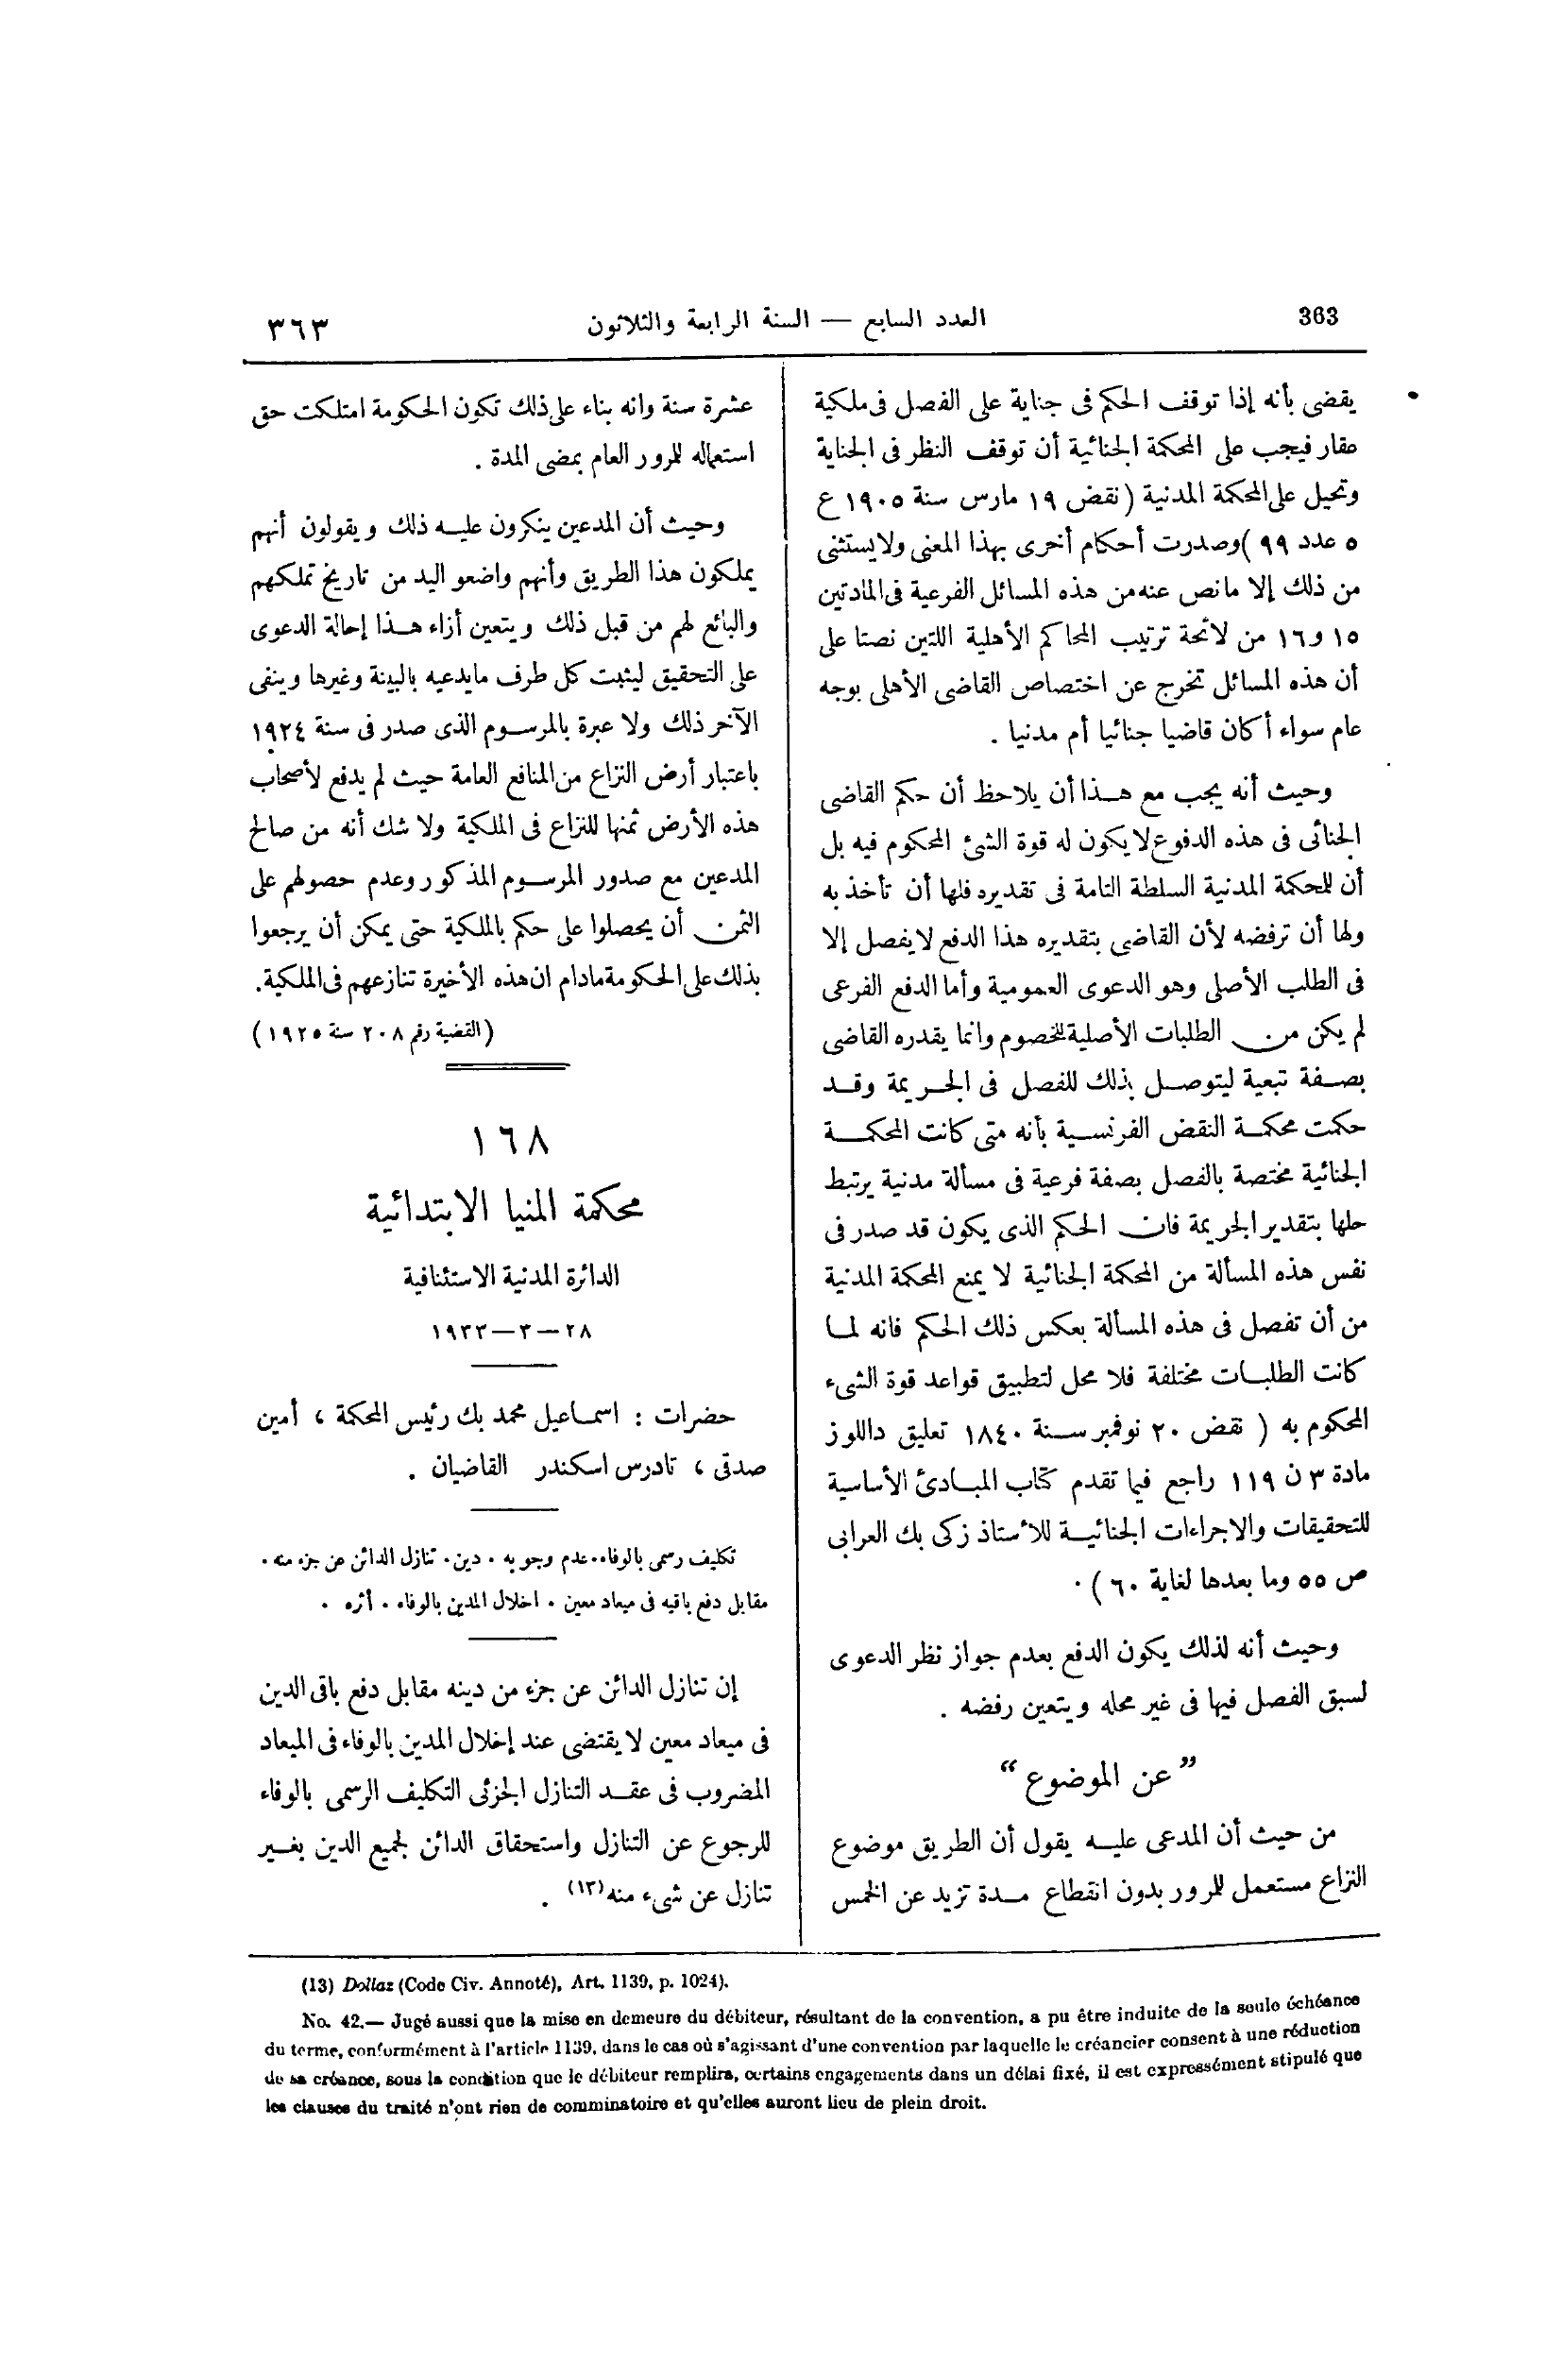 363
العدد السابع — السنة الرابعة والثلاثون
٣٦٣
يقضى بأنه إذا توقف الحكم فى جناية على الفصل فى ملكية
عقار فيجب على المحكمة الجنائية أن توقف النظر فى الجناية
وتحيل على المحكمة المدنية (نقض ١٩ مارس سنة ١٩٠٥ ع
٥ عدد ٩٩) وصدرت أحكام أخرى بهذا المعنى ولا يستثنى
من ذلك إلا ما نص عنه من هذه المسائل الفرعية فى المادتين
١٥ و١٦ من لائحة ترتيب المحاكم الأهلية اللتين نصتا على
أن هذه المسائل تخرج عن اختصاص القاضى الأهلى بوجه
عام سواء أكان قاضيا جنائيا أم مدنيا .
وحيث أنه يجب مع هذا أن يلاحظ أن حكم القاضى
الجنائى فى هذه الدفوع لا يكون له قوة الشئ المحكوم فيه بل
أن للمحكمة المدنية السلطة التامة فى تقديره فلها أن تأخذ به
ولها أن ترفضه لأن القاضى بتقديره هذا الدفع لا يفصل إلا
فى الطلب الأصلى وهو الدعوى العمومية وأما الدفع الفرعى
لم يكن من الطلبات الأصلية للخصوم وانما يقدره القاضى
بصفة تبعية ليتوصل بذلك للفصل فى الجريمة وقد
حكمت محكمة النقض الفرنسية بأنه متى كانت المحكمة
الجنائية مختصة بالفصل بصفة فرعية فى مسألة مدنية يرتبط
حلها بتقدير الجريمة فان الحكم الذى يكون قد صدر فى
نفس هذه المسألة من المحكمة الجنائية لا يمنع المحكمة المدنية
من أن تفصل فى هذه المسألة بعكس ذلك الحكم فانه لما
كانت الطلبات مختلفة فلا محل لتطبيق قواعد قوة الشىء
المحكوم به ( نقض ٢٠ نوفمبر سنة ١٨٤٠ تعليق داللوز
مادة ٣ ن ١١٩ راجع فيما تقدم كتاب المبادئ الأساسية
للتحقيقات والاجراءات الجنائية للأستاذ زكى بك العرابى
ص ٥٥ وما بعدها لغاية ٦٠ ) .
وحيث أنه لذلك يكون الدفع بعدم جواز نظر الدعوى
لسبق الفصل فيها فى غير محله ويتعين رفضه .
” عن الموضوع “
من حيث أن المدعى عليه يقول أن الطريق موضوع
النزاع مستعمل للمرور بدون انقطاع مدة تزيد عن الخمس
عشرة سنة وانه بناء على ذلك تكون الحكومة امتلكت حق
استعماله للمرور العام بمضى المدة .
وحيث أن المدعين ينكرون عليه ذلك ويقولون أنهم
يملكون هذا الطريق وأنهم واضعو اليد من تاريخ تملكهم
والبائع لهم من قبل ذلك ويتعين أزاء هذا إحالة الدعوى
على التحقيق ليثبت كل طرف مايدعيه بالبينة وغيرها وينفى
الآخر ذلك ولا عبرة بالمرسوم الذى صدر فى سنة ١٩٢٤
باعتبار أرض النزاع من المنافع العامة حيث لم يدفع لأصحاب
هذه الأرض ثمنها للنزاع فى الملكية ولا شك أنه من صالح
المدعين مع صدور المرسوم المذكور وعدم حصولهم على
الثمن أن يحصلوا على حكم بالملكية حتى يمكن أن يرجعوا
بذلك على الحكومة مادام ان هذه الأخيرة تنازعهم فى الملكية.
(القضية رقم ٢٠٨ سنة ١٩٢٥)
١٦٨
محكمة المنيا الابتدائية
الدائرة المدنية الاستئنافية
٢٨—٣—١٩٣٣
حضرات : اسماعيل محمد بك رئيس المحكمة ، أمين
صدقى ، تادرس اسكندر القاضيان .
تكليف رسمى بالوفاء. عدم وجوبه . دين. تنازل الدائن عن جزء منه .
مقابل دفع باقيه فى ميعاد معين . اخلال المدين بالوفاء . أثره .
إن تنازل الدائن عن جزء من دينه مقابل دفع باقى الدين
فى ميعاد معين لا يقتضى عند إخلال المدين بالوفاء فى الميعاد
المضروب فى عقد التنازل الجزئى التكليف الرسمى بالوفاء
للرجوع عن التنازل واستحقاق الدائن لجميع الدين بغير
تنازل عن شىء منه(١٣) .
(13) Dollaz (Code Civ. Annoté), Art. 1139, p. 1024).
No. 42.— Jugé aussi que la mise en demeure du débiteur, résultant de la convention, a pu être induite de la seule échéance
du terme, conformément à l'article 1139, dans le cas où s'agissant d'une convention par laquelle le créancier consent à une réduction
de sa créance, sous la condition que le débiteur remplira, certains engagements dans un délai fixé, il est expressément stipulé que
les clauses du traité n'ont rien de comminatoire et qu'elles auront lieu de plein droit.